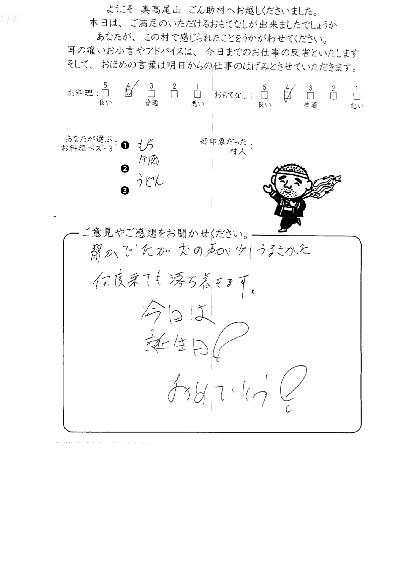 ようこそ 奥高尾山 ごん助村へお越しくださいました。
本日は、ご満足のいただけるおもてなしが出来ましたでしょうか
あなたが、この村で感じられたことをうかがわせてください。
耳の痛いお小言やアドバイスは、今日までのお仕事の反省といたします
そして、おほめの言葉は明日からの仕事のはげみとさせていただきます。
お料理: 5 4 3 2 1 おもてなし: 5 4 3 2 1
良い 普通 悪い 良い 普通 悪い
あなたが選ぶ
お料理ベスト3:
❶ もち
❷
❸ うどん
好印象だった
村人:
ご意見やご感想をお聞かせください。
静かでしたが 犬の声が少しうるさかった
何度来ても落ち着きます。
今日は
誕生日!
おめでとう!